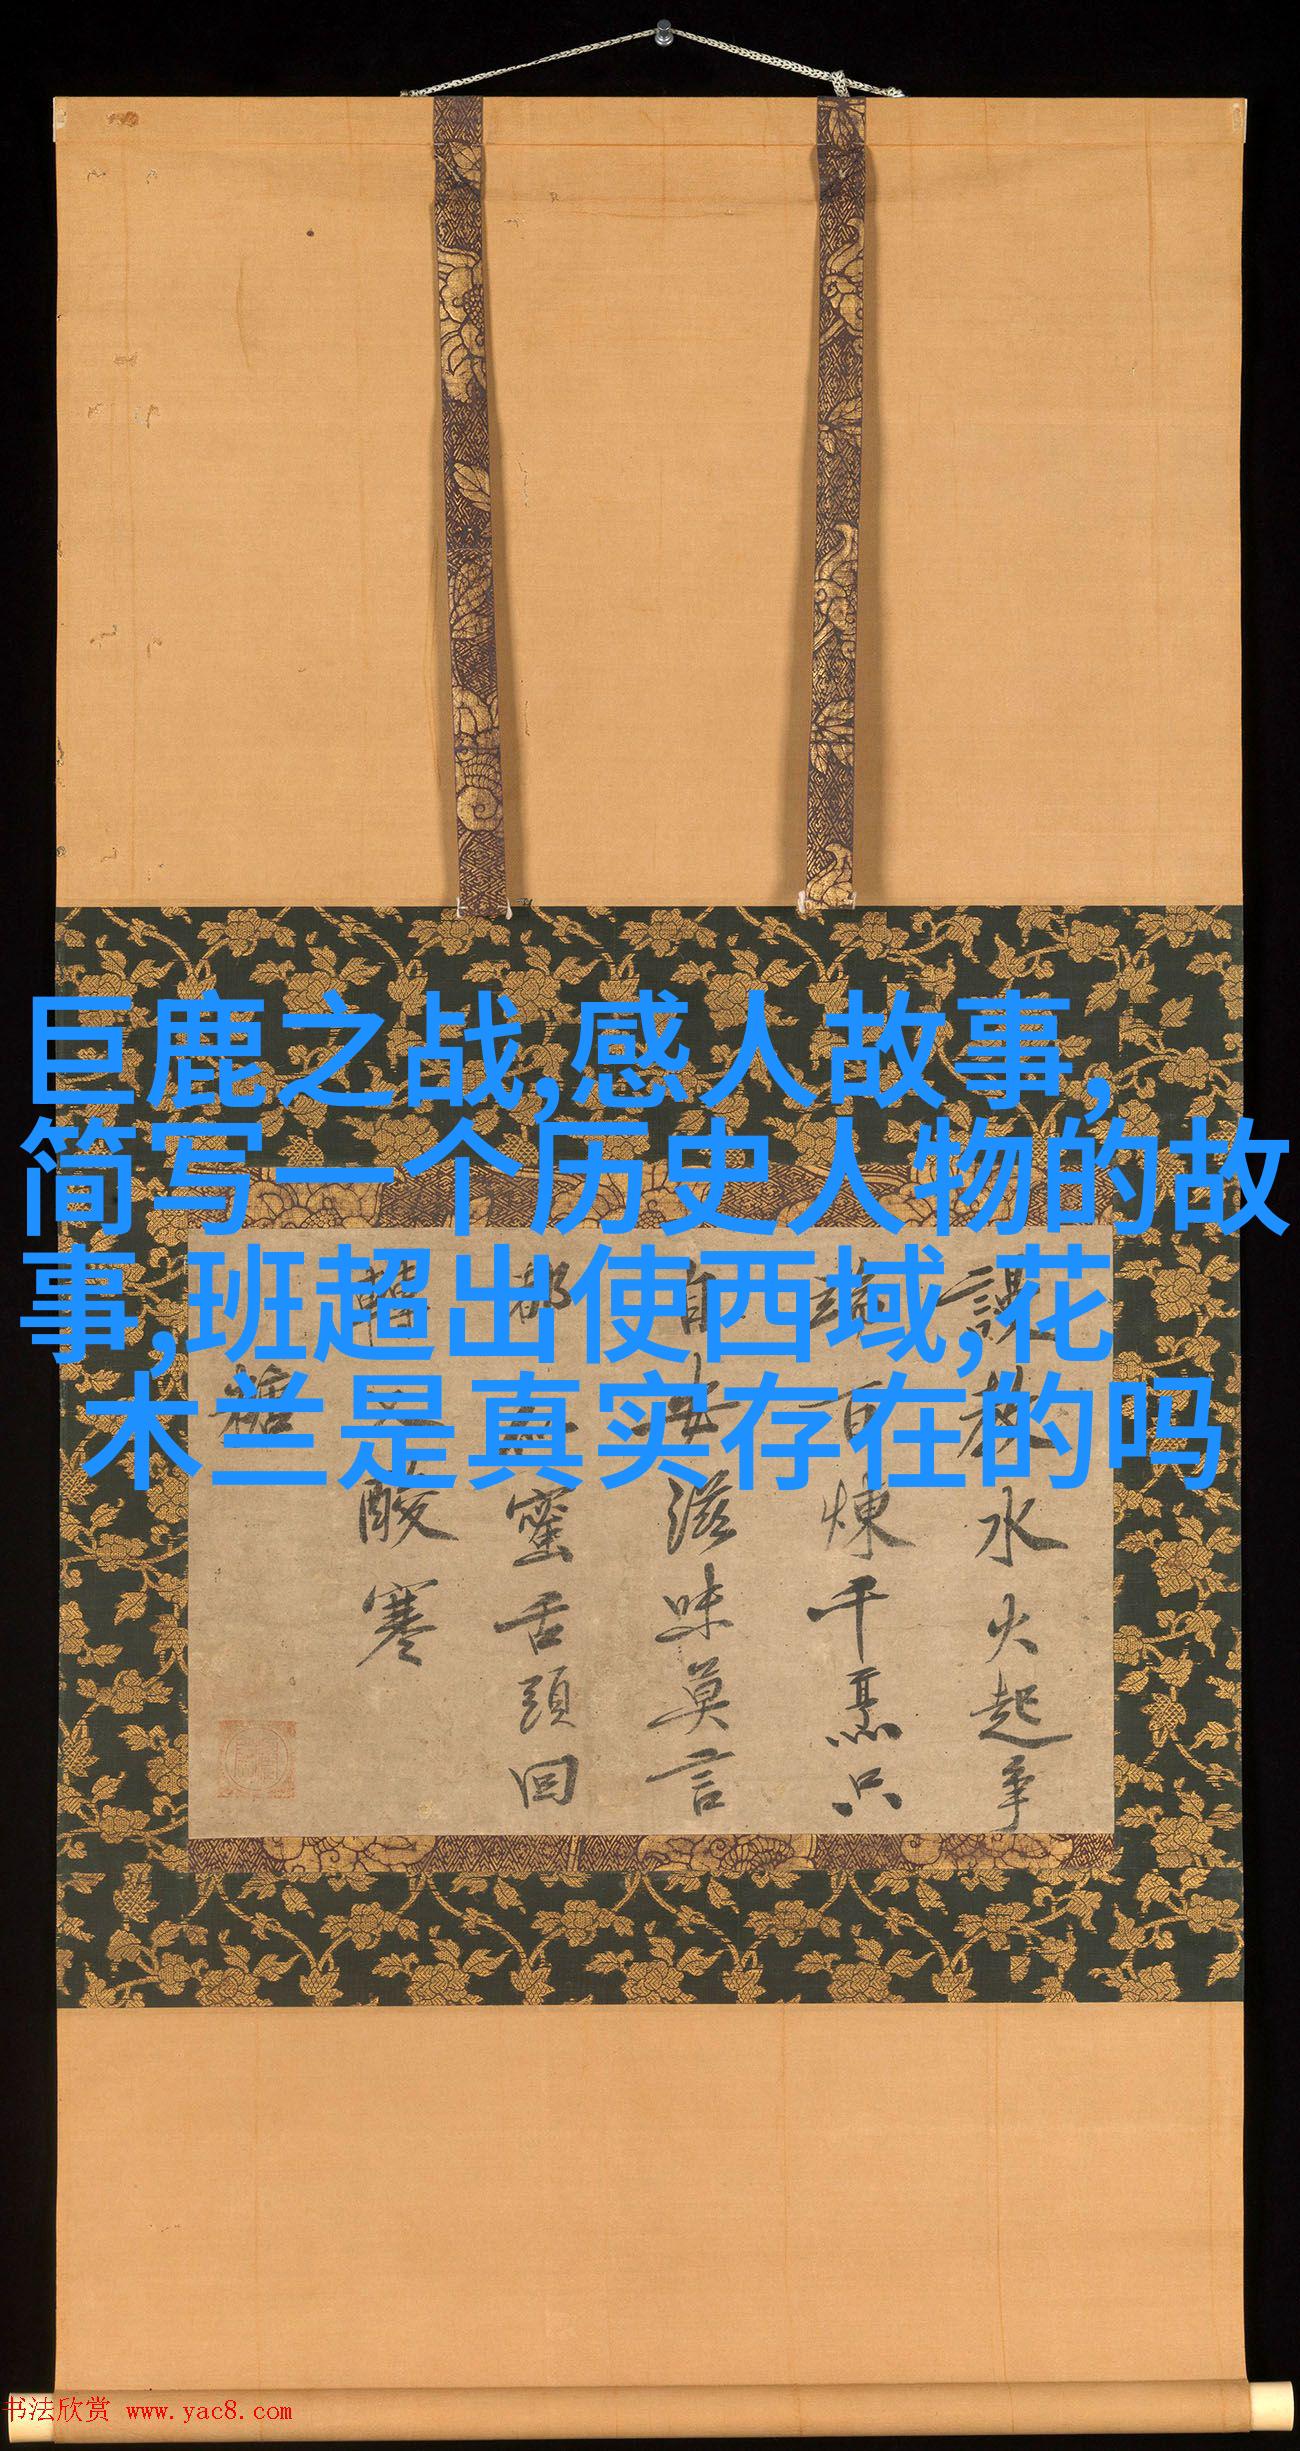 巨鹿之战,感人故事,
简写一个历史人物的故
事,班超出使西域,花
木兰是真实存在的吗
水火起争
百煉千烹只
滋味莫言
蜜舌頭回
酸寒
糖
书法欣赏 www.yac8.com